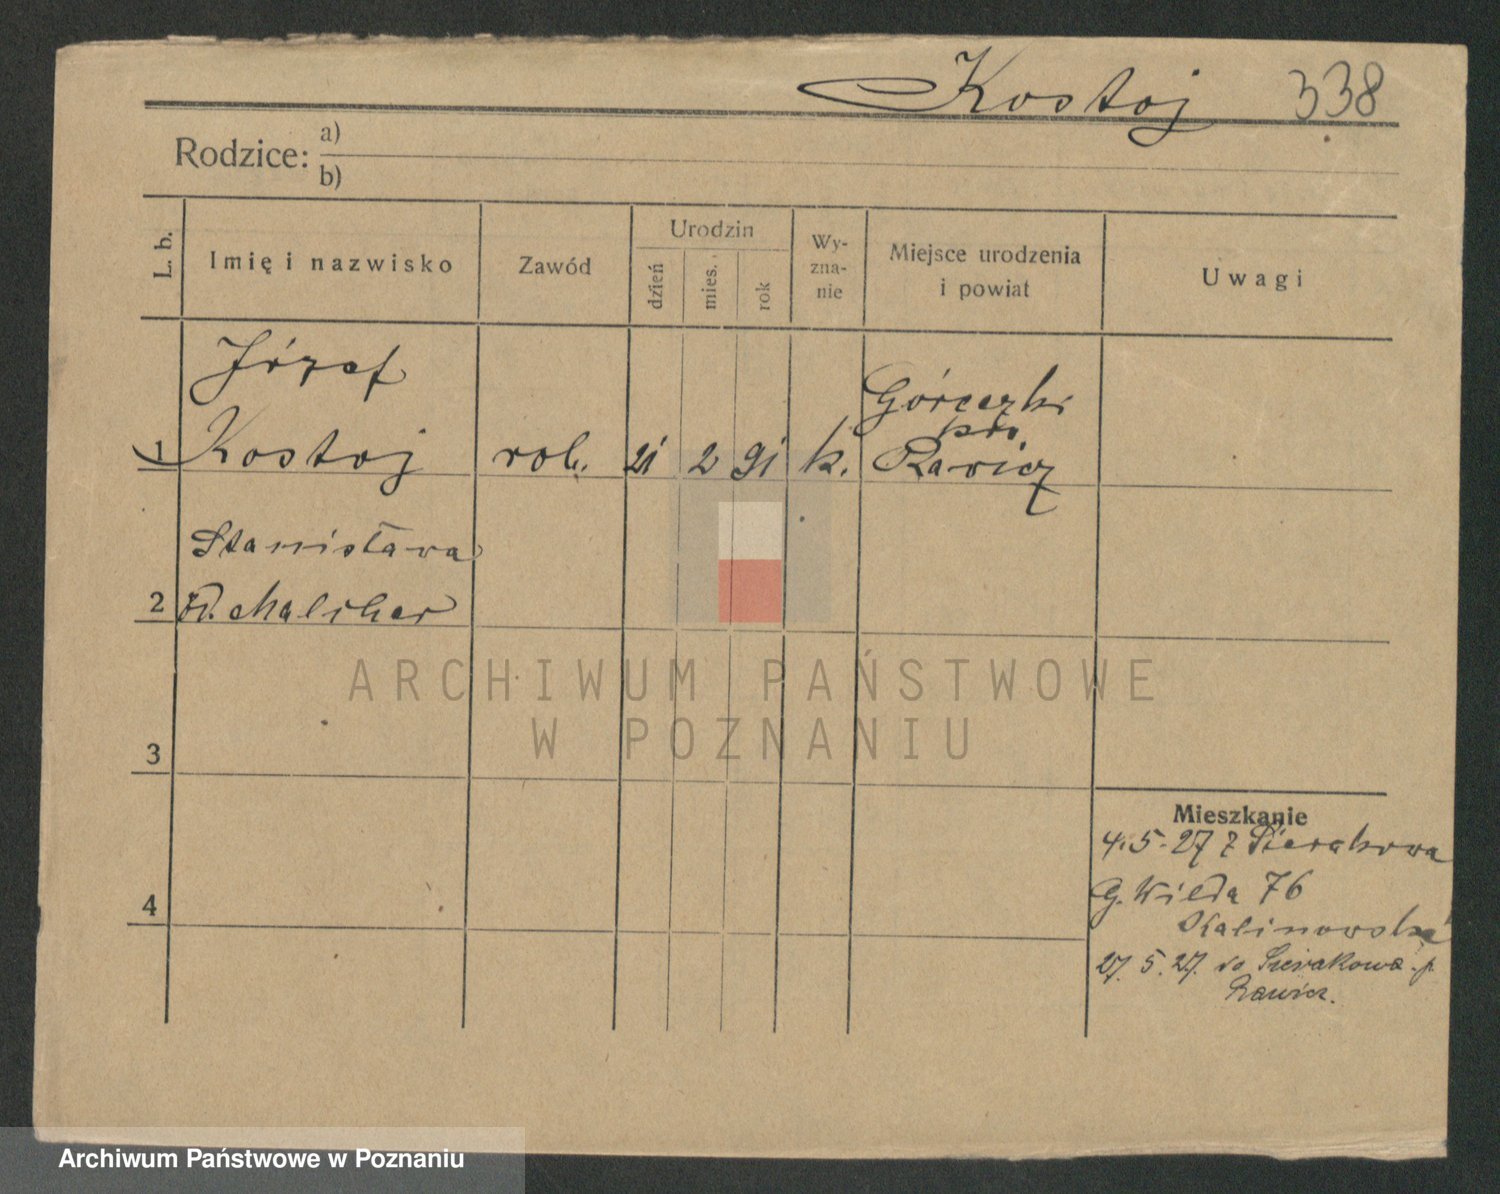 Kostoj 338
Rodzice: a)
b)
L. b. Imię i nazwisko Zawód Urodzin dzień mies. rok Wyznanie Miejsce urodzenia i powiat Uwagi
Józef Góreczki
1 Kostoj rob. 21 2 91 k. pow. Rawicz
Stanisława
2 Malcher
3
4
Mieszkanie
4.5.27 z Sierakowa
G. Wilda 76
Kalinowska
27.5.27. do Sierakowa p.
Rawicz.
ARCHIWUM PAŃSTWOWE
W POZNANIU
Archiwum Państwowe w Poznaniu